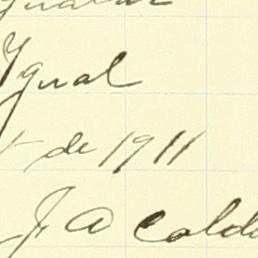 Ygual
de 1911
J. A. Calde